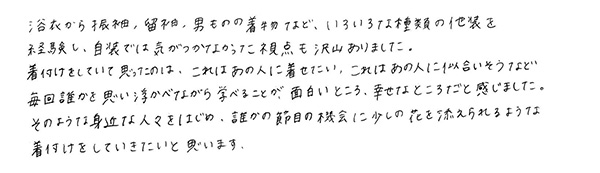 浴衣から振袖，留袖，男ものの着物など、いろいろな種類の他装を
経験し、自装では気がつかなかった視点も沢山ありました。
着付けをしていて思ったのは、これはあの人に着せたい，これはあの人に似合いそうなど
毎回誰かを思い浮かべながら学べることが面白いところ、幸せなところだと感じました。
そのような身近な人々をはじめ、誰かの節目の機会に少しの花を添えられるような
着付けをしていきたいと思います.